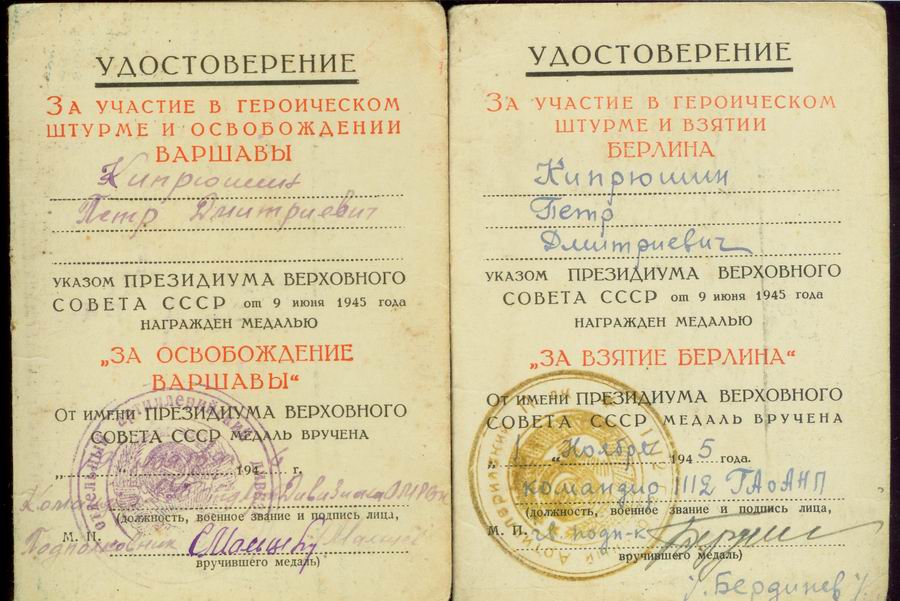 УДОСТОВЕРЕНИЕ
ЗА УЧАСТИЕ В ГЕРОИЧЕСКОМ
ШТУРМЕ И ОСВОБОЖДЕНИИ
ВАРШАВЫ
Кипрюшин
Петр Дмитриевич
УКАЗОМ ПРЕЗИДИУМА ВЕРХОВНОГО
СОВЕТА СССР от 9 июня 1945 года
НАГРАЖДЕН МЕДАЛЬЮ
„ЗА ОСВОБОЖДЕНИЕ
ВАРШАВЫ“
ОТ ИМЕНИ ПРЕЗИДИУМА ВЕРХОВНОГО
СОВЕТА СССР МЕДАЛЬ ВРУЧЕНА
194 г.
(должность, военное звание и подпись лица,
М. П. Подполковник
вручившего медаль)
УДОСТОВЕРЕНИЕ
ЗА УЧАСТИЕ В ГЕРОИЧЕСКОМ
ШТУРМЕ И ВЗЯТИИ
БЕРЛИНА
Кипрюшин
Петр
Дмитриевич
УКАЗОМ ПРЕЗИДИУМА ВЕРХОВНОГО
СОВЕТА СССР от 9 июня 1945 года
НАГРАЖДЕН МЕДАЛЬЮ
„ЗА ВЗЯТИЕ БЕРЛИНА“
ОТ ИМЕНИ ПРЕЗИДИУМА ВЕРХОВНОГО
СОВЕТА СССР МЕДАЛЬ ВРУЧЕНА
„1“ Ноября 1945 года.
командир 1112
(должность, военное звание и подпись лица,
М. П. подп-к
вручившего медаль)
/Бердичев/